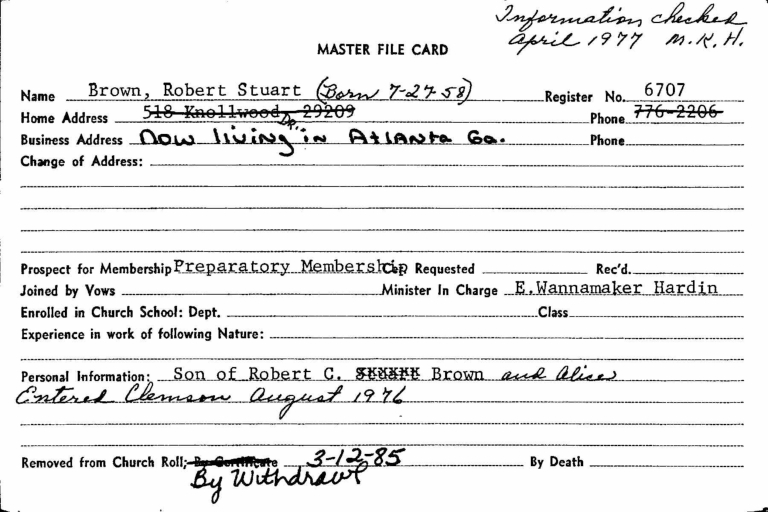 Information checked
April 1977 M.K.H.
MASTER FILE CARD
Name Brown, Robert Stuart (Born 7-27-58) Register No. 6707
Home Address 518 Knollwood Dr. 29209 Phone 776-2206
Business Address Now living in Atlanta Ga. Phone
Change of Address:
Prospect for Membership Preparatory Membership Requested Rec'd.
Joined by Vows Minister In Charge E.Wannamaker Hardin
Enrolled in Church School: Dept. Class
Experience in work of following Nature:
Personal Information: Son of Robert C. Stuart Brown and Alice
Entered Clemson August 1976
Removed from Church Roll; By Certificate 3-12-85 By Death
By Withdrawl